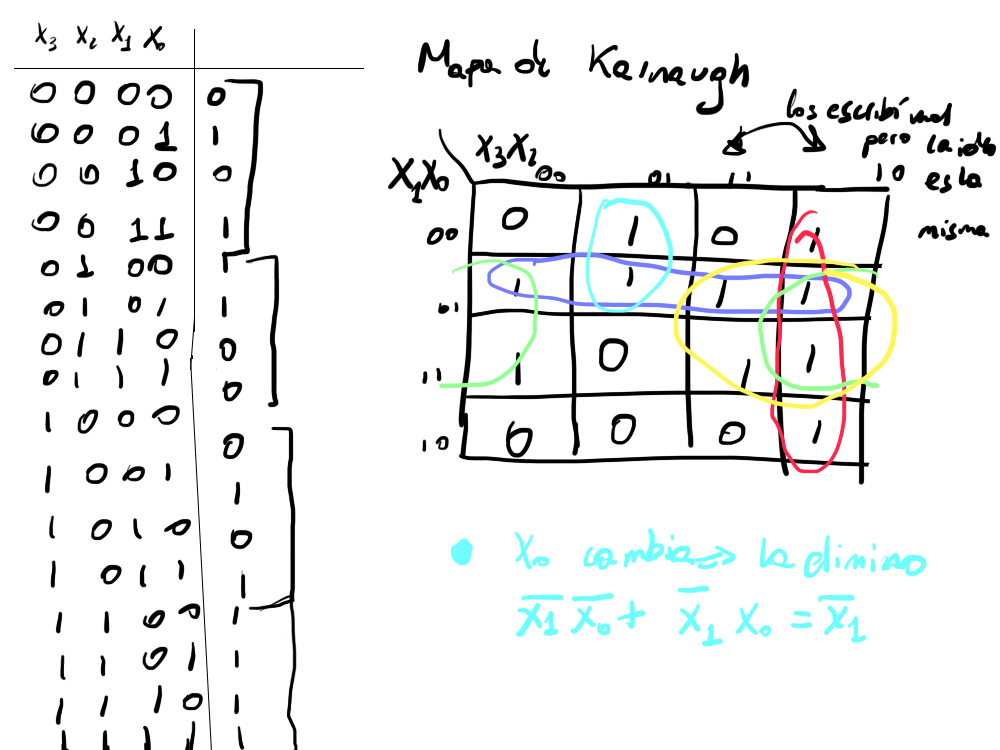 X3 X2 X1 X0
0 0 0 0 0
0 0 0 1 1
0 0 1 0 0
0 0 1 1 1
0 1 0 0 1
0 1 0 1 1
0 1 1 0 0
0 1 1 1 0
1 0 0 0 0
1 0 0 1 1
1 0 1 0 0
1 0 1 1 1
1 1 0 0 1
1 1 0 1 1
1 1 1 0 1
1 1 1 1 1
Mapa de Karnaugh
los escribí mal
pero la idea
es la
misma
X3X2
X1X0 00 01 11 10
00 0 1 0 1
01 1 1 1 1
11 1 0 1 1
10 0 0 0 1
• X0 cambia => la elimino
X̅1 X̅0 + X̅1 X0 = X̅1